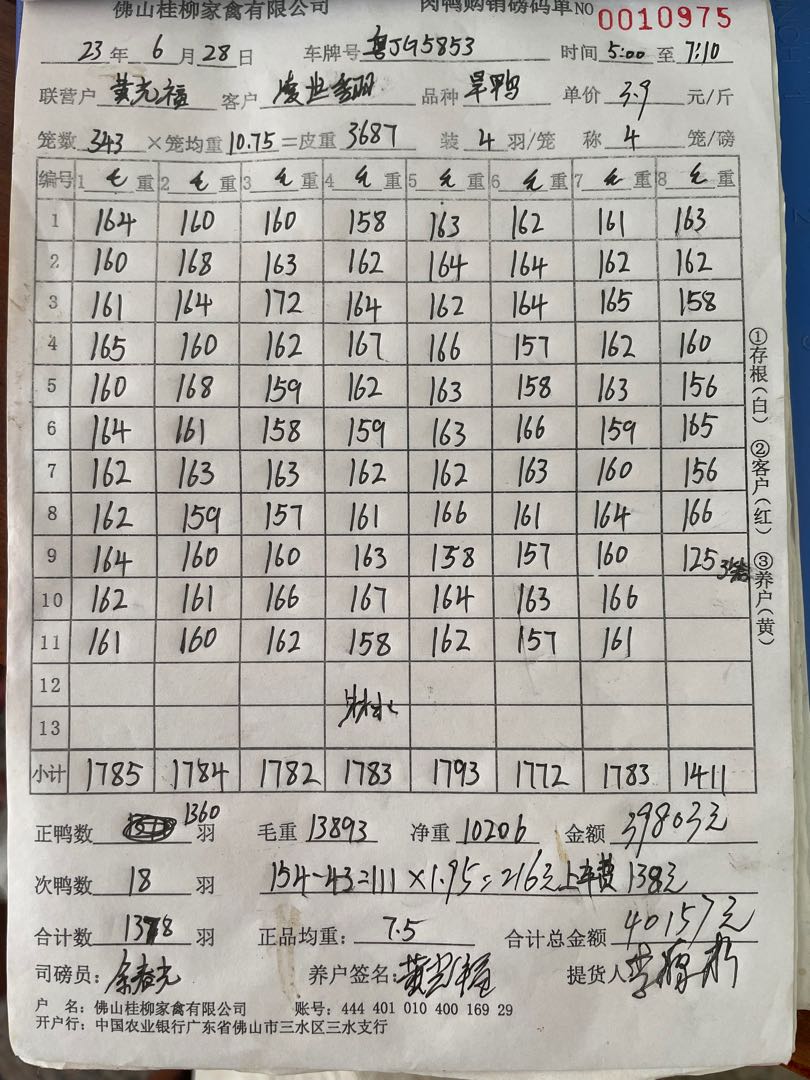 佛山桂柳家禽有限公司 肉鸭购销磅码单 NO 0010975
23 年 6 月 28 日 车牌号 粤JG5853 时间 5:00 至 7:10
联营户 黄光福 客户 品种 旱鸭 单价 3.9 元/斤
笼数 343 ×笼均重 10.75 =皮重 3687 装 4 羽/笼 称 4 笼/磅
编号 1 毛 重 2 毛 重 3 毛 重 4 毛 重 5 毛 重 6 毛 重 7 毛 重 8 毛 重
1 164 160 160 158 163 162 161 163
2 160 168 163 162 164 164 162 162
3 161 164 172 164 162 164 165 158
4 165 160 162 167 166 157 162 160
5 160 168 159 162 163 158 163 156
6 164 161 158 159 163 166 159 165
7 162 163 163 162 162 163 160 156
8 162 159 157 161 166 161 164 166
9 164 160 160 163 158 157 160 125 3笼
10 162 161 166 167 164 163 166
11 161 160 162 158 162 157 161
12
13
小计 1785 1784 1782 1783 1793 1772 1783 1411
正鸭数 1360 羽 毛重 13893 净重 10206 金额 39803元
次鸭数 18 羽 154-43=111×1.95=216元 上车费 138元
合计数 1378 羽 正品均重: 7.5 合计总金额 40157元
司磅员: 余春光 养户签名: 黄光福 提货人
户 名: 佛山桂柳家禽有限公司 账号: 444 401 010 400 169 29
开户行: 中国农业银行广东省佛山市三水区三水支行
①存根(白) ②客户(红) ③养户(黄)